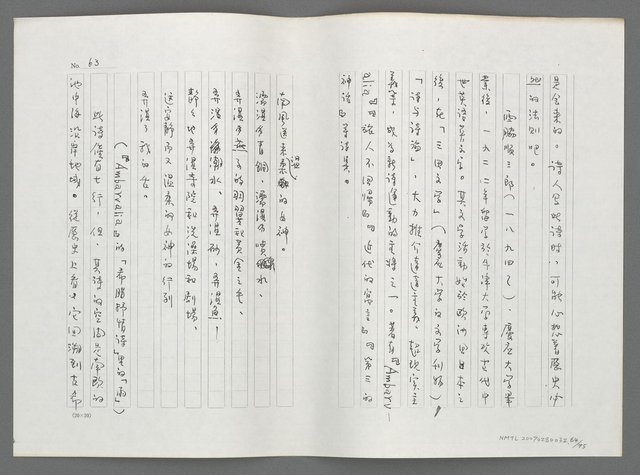 是會來的。詩人寫此詩時，可能心想著歷史中
的法則吧。
西脇順三郎（一八九四～），慶應大學畢
業後，一九二二年留學於牛津大學專攻古代中
世英語英文學。其文學活動始於歐洲回日本之
後，於「三田文學」（慶應大學的文學刊物）
「詩與詩論」，大力推介達達主義、超現實主
義等，成為新詩運動的主將之一。著有『Ambarv-
alia』『旅人不回歸』『近代的寓言』『第三的
神話』等詩集。
No. 63
南風送來柔溫的女神。
濡濕了青銅，濡濕了噴水，
弄濕了燕子的羽翼和黃金之毛，
弄濕了潮水、弄濕砂，弄濕魚，
靜靜地弄濕寺院和洗澡場和劇場，
這安靜而又溫柔的女神的行列
弄濕了我的舌。
（『Ambarvalia』的「希臘抒情詩」裡的「雨」）
此詩僅有七行，但，其詩的空間是南歐的
地中海沿岸地域。從歷史上看，它回溯到古希
(20×30)
NMTL20070280032